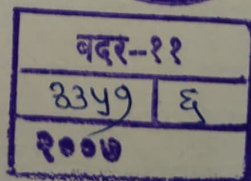 बदर-११
३३५१ ६
२००७